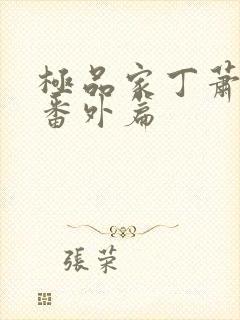 極品家丁蕭
番外篇
張荣